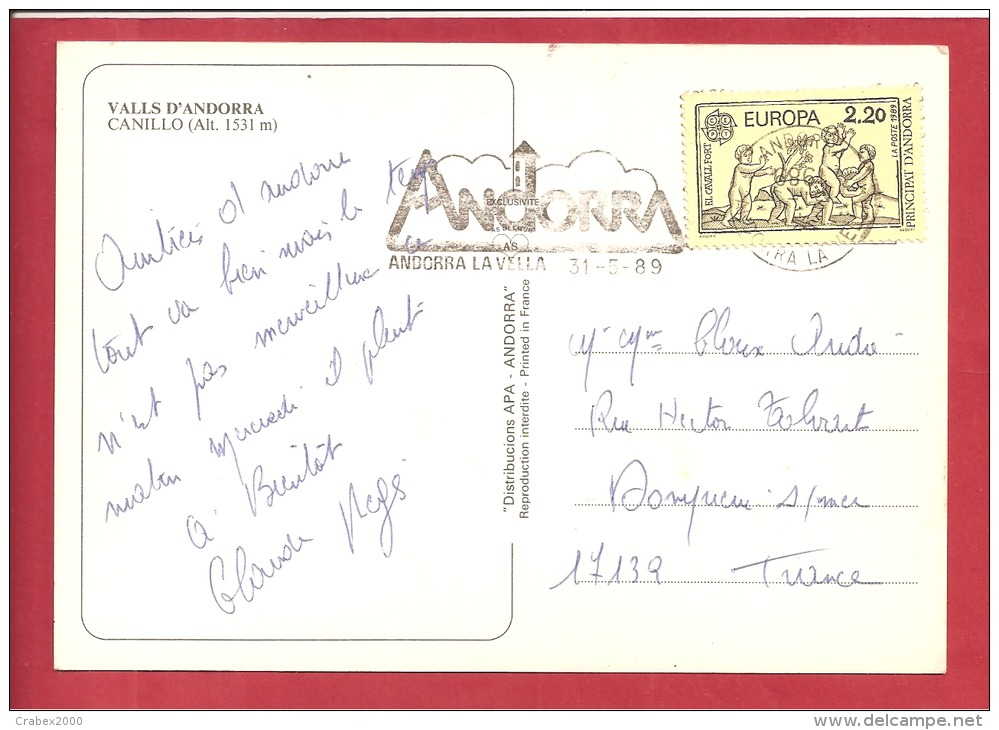 VALLS D'ANDORRA
CANILLO (Alt. 1531 m)
Amitiés d'andorre
tout va bien mais le temps
n'est pas merveilleux ce
matin Mercredi il pleut
a Bientôt
Claude
ANDORRA
EXCLUSIVITE
ANDORRA LA VELLA 31-5-89
EUROPA 2.20
EL CAVALL FORT
LA POSTE 1989
PRINCIPAT D'ANDORRA
"Distribucions APA - ANDORRA"
Reproduction interdite - Printed in France
Mr Mme André
Rue Hector
s/mer
17132 France
Crabex2000
www.delcampe.net